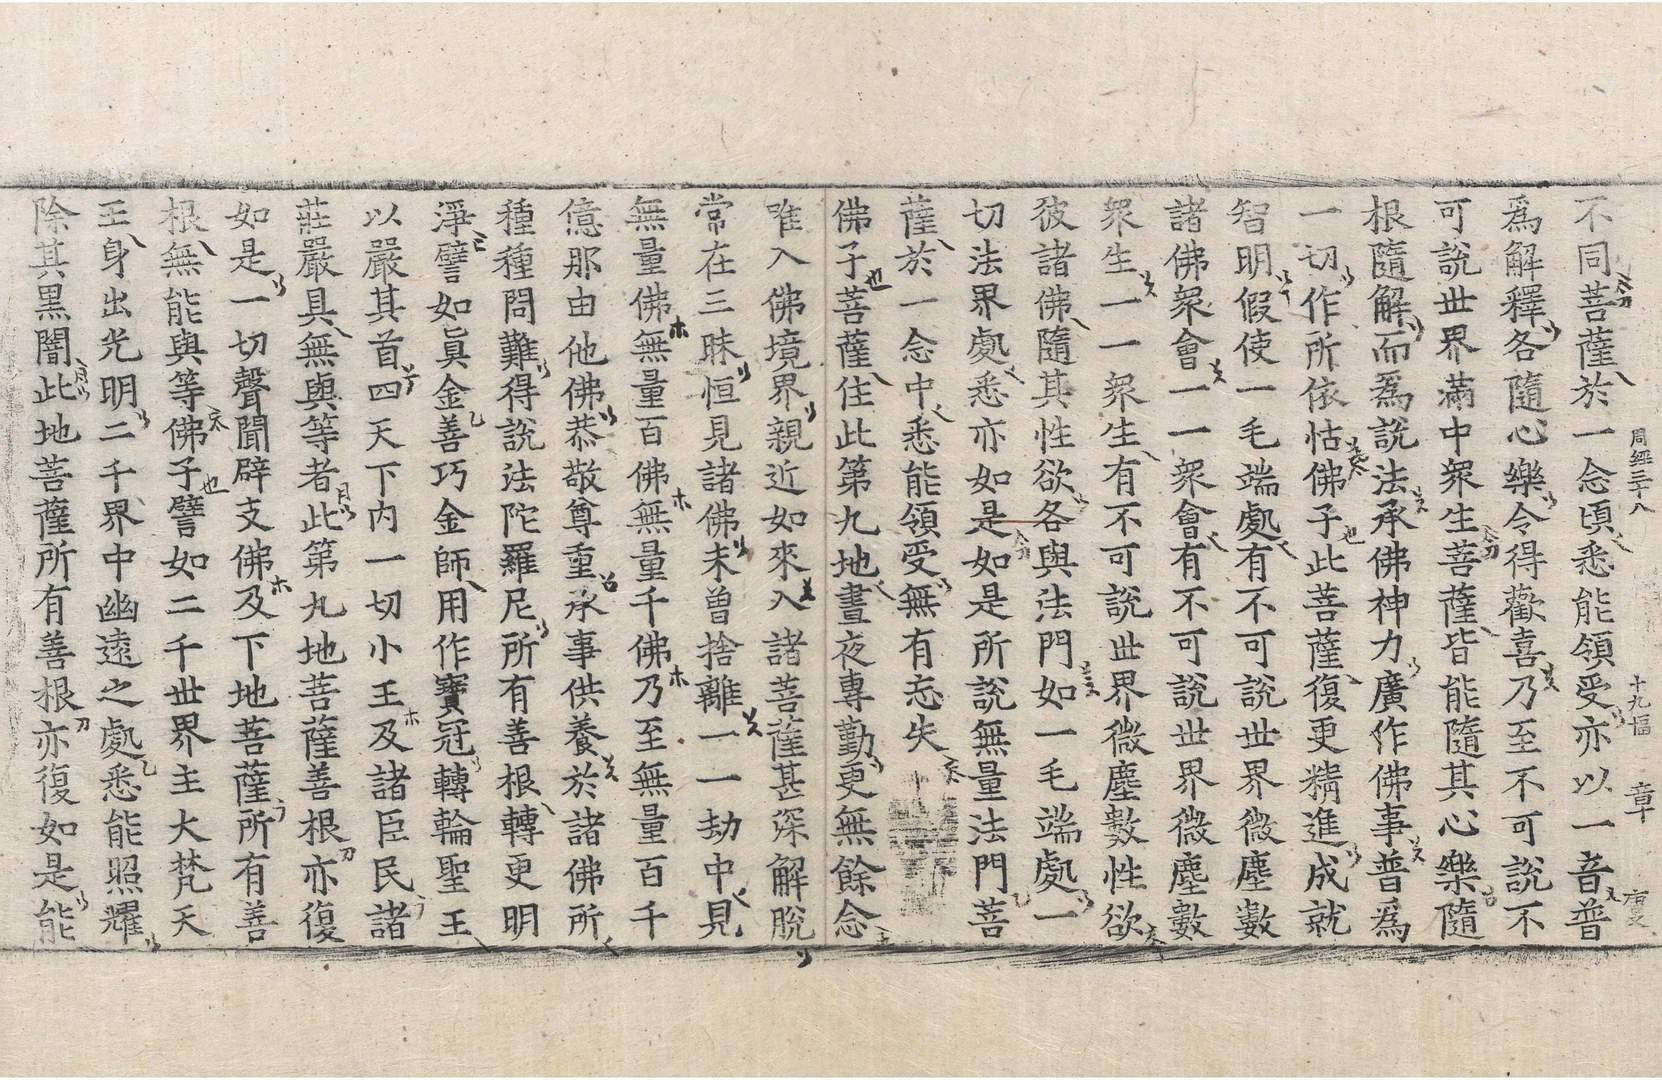 周經三十八 十九幅 章
不同菩薩於一念頃悉能領受亦以一音普
爲解釋各隨心樂令得歡喜乃至不可說不
可說世界滿中衆生菩薩皆能隨其心樂隨
根隨解而爲說法承佛神力廣作佛事普爲
一切作所依怙佛子此菩薩復更精進成就
智明假使一毛端處有不可說世界微塵數
諸佛衆會一一衆會有不可說世界微塵數
衆生一一衆生有不可說世界微塵數性欲
彼諸佛隨其性欲各與法門如一毛端處一
切法界處悉亦如是如是所說無量法門菩
薩於一念中悉能領受無有忘失
佛子菩薩住此第九地晝夜專勤更無餘念
唯入佛境界親近如來入諸菩薩甚深解脫
常在三昧恒見諸佛未曾捨離一一劫中見
無量佛無量百佛無量千佛乃至無量百千
億那由他佛恭敬尊重承事供養於諸佛所
種種問難得說法陀羅尼所有善根轉更明
淨譬如眞金善巧金師用作寶冠轉輪聖王
以嚴其首四天下內一切小王及諸臣民諸
莊嚴具無與等者此第九地菩薩善根亦復
如是一切聲聞辟支佛及下地菩薩所有善
根無能與等佛子譬如二千世界主大梵天
王身出光明二千界中幽遠之處悉能照耀
除其黑闇此地菩薩所有善根亦復如是能